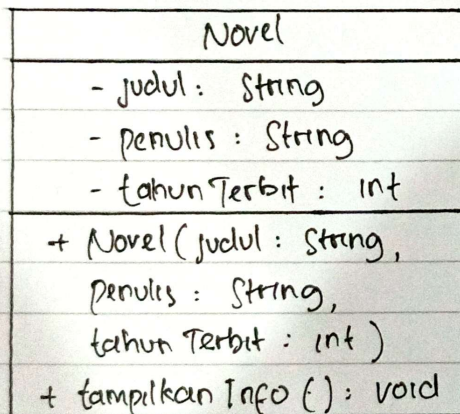 Novel
- judul : String
- penulis : String
- tahun Terbit : int
+ Novel (judul : String,
penulis : String,
tahun Terbit : int )
+ tampilkan Info () : void